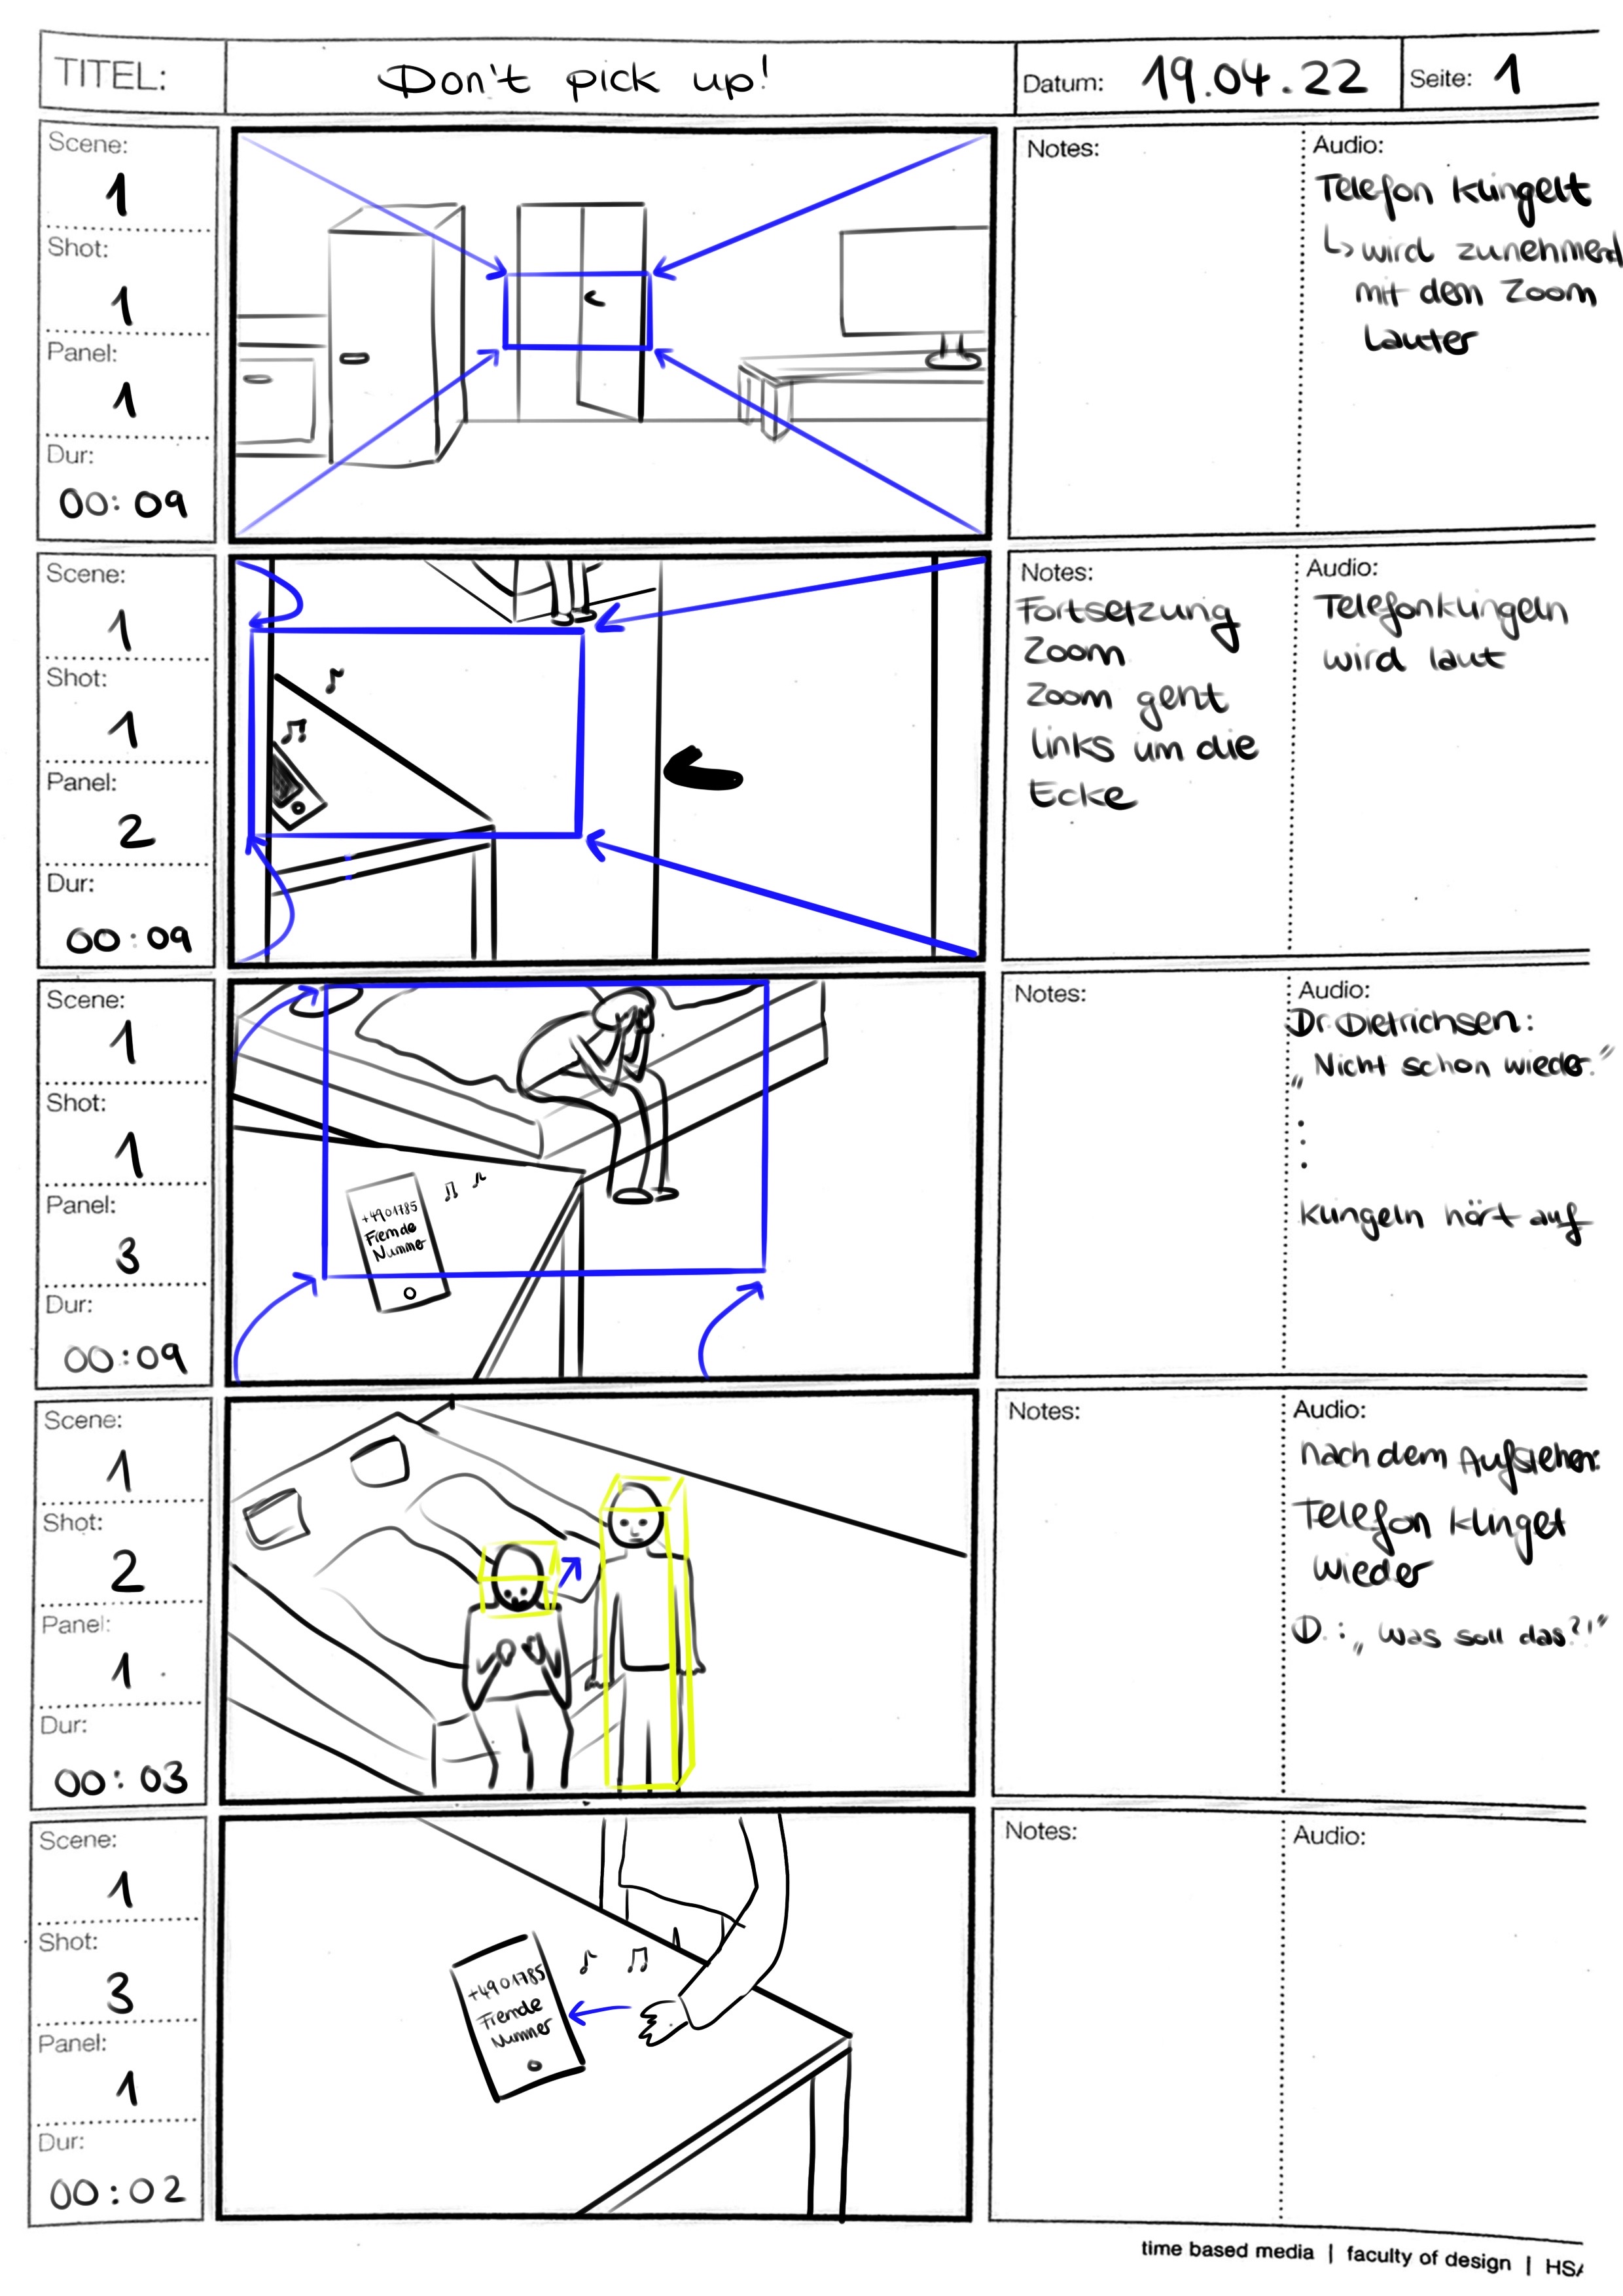 TITEL:
Don't pick up!
Datum: 19.04.22
Seite: 1
Scene:
1
Shot:
1
Panel:
1
Dur:
00:09
Notes:
Audio:
Telefon klingelt
↳ wird zunehmend
mit dem Zoom
lauter
Scene:
1
Shot:
1
Panel:
2
Dur:
00:09
Notes:
Fortsetzung
Zoom
Zoom geht
links um die
Ecke
Audio:
Telefonklingeln
wird laut
Scene:
1
Shot:
1
Panel:
3
Dur:
00:09
+4901785
Fremde
Nummer
Notes:
Audio:
Dr Dietrichsen:
„Nicht schon wieder."
.
.
.
klingeln hört auf
Scene:
1
Shot:
2
Panel:
1
Dur:
00:03
Notes:
Audio:
nach dem Aufstehen:
Telefon klingelt
wieder
D.: „Was soll das?!"
Scene:
1
Shot:
3
Panel:
1
Dur:
00:02
+4901785
Fremde
Nummer
Notes:
Audio:
time based media | faculty of design | HSA